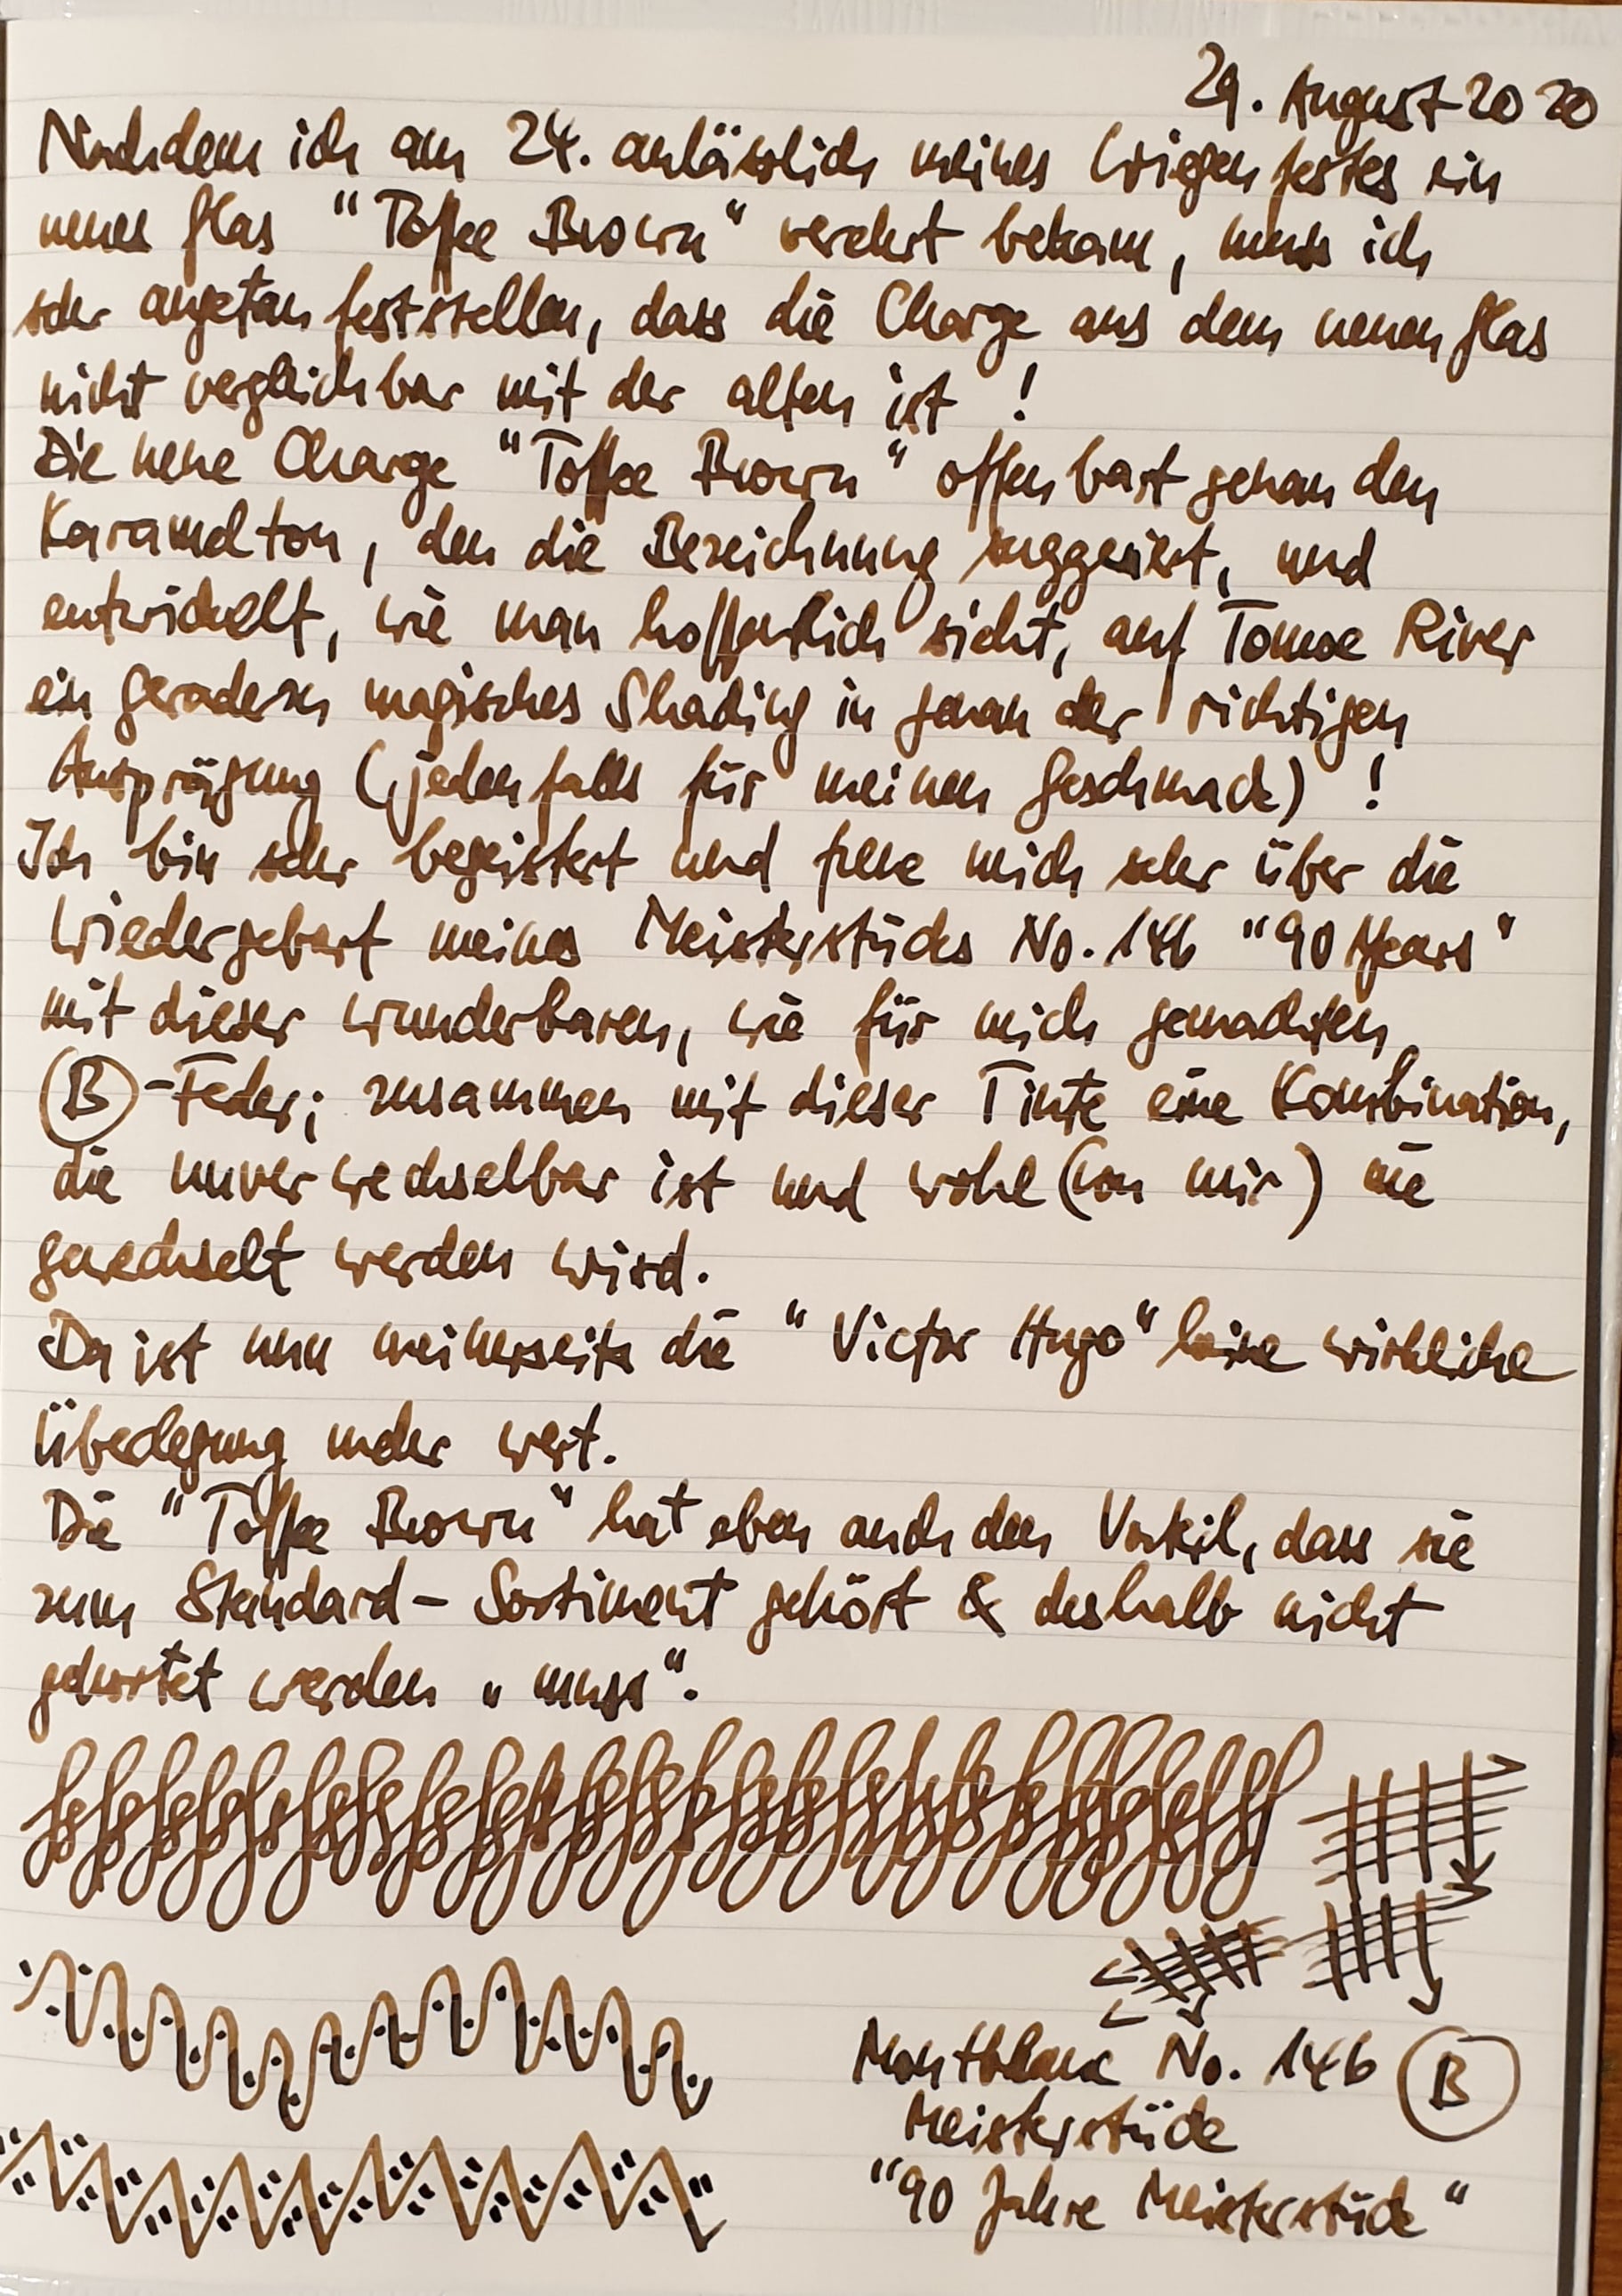 29. August 2020
Nachdem ich am 24. anlässlich meines Wiegenfestes ein
neues Glas "Toffee Brown" verehrt bekam, muss ich
sehr angetan feststellen, dass die Charge aus dem neuen Glas
nicht vergleichbar mit der alten ist !
Die neue Charge "Toffee Brown" offenbart genau den
Karamelton, den die Bezeichnung suggeriert, und
entwickelt, wie man hoffentlich sieht, auf Tomoe River
ein geradezu magisches Shading in genau der richtigen
Ausprägung (jedenfalls für meinen Geschmack) !
Ich bin sehr begeistert und freue mich sehr über die
Wiedergeburt meines Meisterstücks No. 146 "90 Years"
mit dieser wunderbaren, wie für mich gemachten
B -Feder; zusammen mit dieser Tinte eine Kombination,
die unverwechselbar ist und wohl (von mir) nie
gewechselt werden wird.
Da ist nun meinerseits die "Victor Hugo" keine wirkliche
Überlegung mehr wert.
Die "Toffee Brown" hat eben auch den Vorteil, dass sie
zum Standard-Sortiment gehört & deshalb nicht
gehortet werden „muss“.
Montblanc No. 146 B
Meisterstück
"90 Jahre Meisterstück"